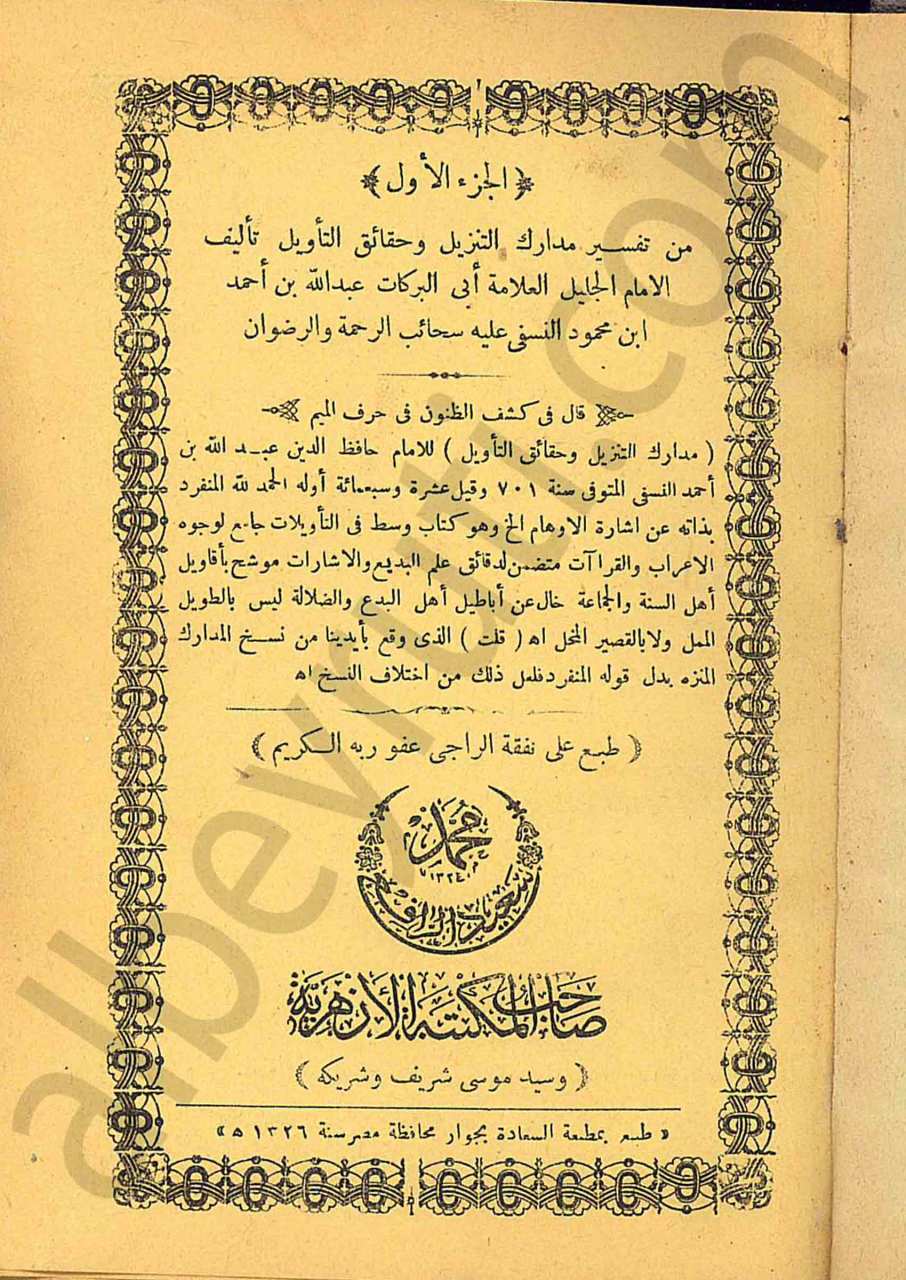 ﴿ الجزء الأول ﴾
من تفسير مدارك التنزيل وحقائق التأويل تأليف
الامام الجليل العلامة أبى البركات عبدالله بن أحمد
ابن محمود النسفى عليه سحائب الرحمة والرضوان
قال فى كشف الظنون فى حرف الميم
( مدارك التنزيل وحقائق التأويل ) للامام حافظ الدين عبد الله بن
أحمد النسفى المتوفى سنة ٧٠١ وقيل عشرة وسبعمائة أوله الحمد لله المنفرد
بذاته عن اشارة الاوهام الخ وهو كتاب وسط فى التأويلات جامع لوجوه
الاعراب والقراآت متضمن لدقائق علم البديع والاشارات موشح بأقاويل
أهل السنة والجماعة خال عن أباطيل أهل البدع والضلالة ليس بالطويل
الممل ولا بالقصير المخل اه ( قلت ) الذى وقع بأيدينا من نسخ المدارك
المنزه بدل قوله المنفرد فلعل ذلك من اختلاف النسخ اه
( طبع على نفقة الراجى عفو ربه الكريم )
محمد
١٣٢٤
سعيد الرافعى
صاحب المكتبة الأزهرية
( وسيد موسى شريف وشريكه )
« طبع بمطبعة السعادة بجوار محافظة مصر سنة ١٣٢٦ ه »
albeyruti.com